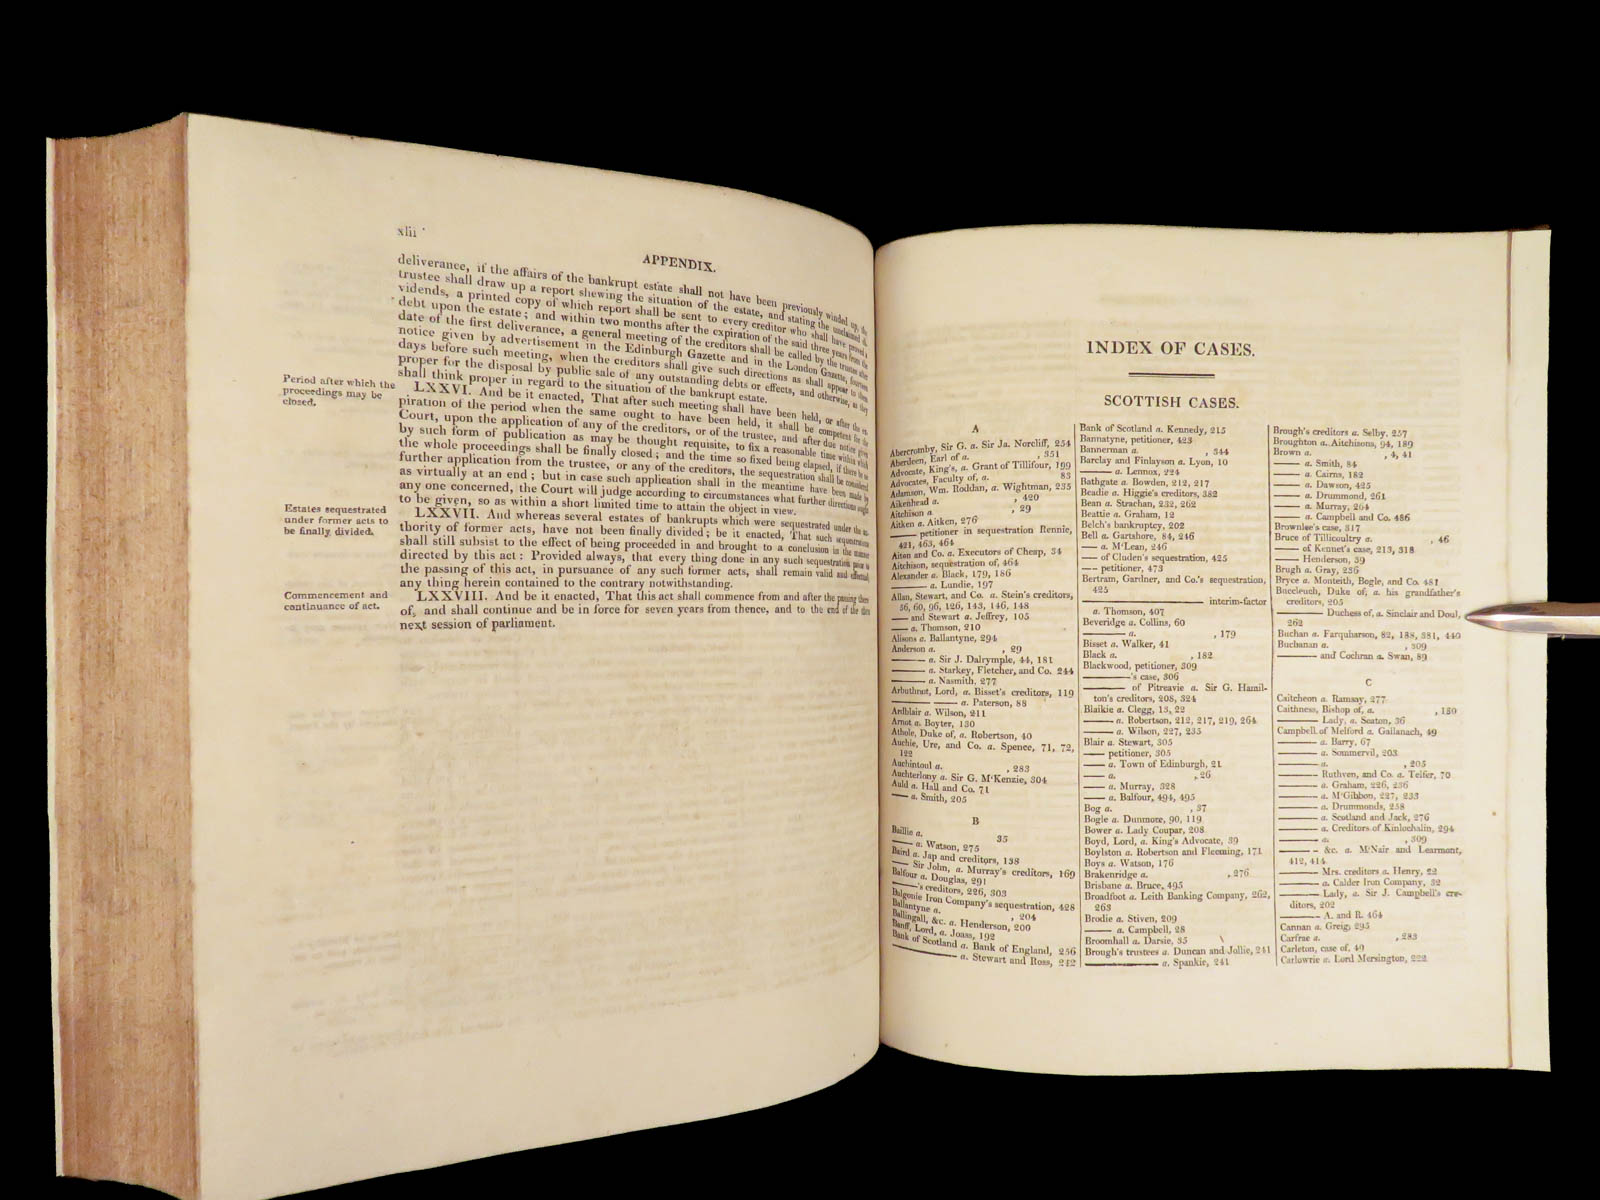 xlii
APPENDIX.
deliverance, if the affairs of the bankrupt estate shall not have been previously winded up, the
trustee shall draw up a report shewing the situation of the estate, and stating the unclaimed di-
vidends, a printed copy of which report shall be sent to every creditor who shall have proved a
debt upon the estate; and within two months after the expiration of the said three years from the
date of the first deliverance, a general meeting of the creditors shall be called by the trustee after
notice given by advertisement in the Edinburgh Gazette and in the London Gazette, fourteen
days before such meeting, when the creditors shall give such directions as shall appear to them
proper for the disposal by public sale of any outstanding debts or effects, and otherwise, as they
shall think proper in regard to the situation of the bankrupt estate.
Period after which the
proceedings may be
closed.
LXXVI. And be it enacted, That after such meeting shall have been held, or after the ex-
piration of the period when the same ought to have been held, it shall be competent for the
Court, upon the application of any of the creditors, or of the trustee, and after due notice given
by such form of publication as may be thought requisite, to fix a reasonable time within which
the whole proceedings shall be finally closed; and the time so fixed being elapsed, if there be no
further application from the trustee, or any of the creditors, the sequestration shall be considered
as virtually at an end; but in case such application shall in the meantime have been made by
any one concerned, the Court will judge according to circumstances what further directions ought
to be given, so as within a short limited time to attain the object in view.
Estates sequestrated
under former acts to
be finally divided.
LXXVII. And whereas several estates of bankrupts which were sequestrated under the au-
thority of former acts, have not been finally divided; be it enacted, That such sequestrations
shall still subsist to the effect of being proceeded in and brought to a conclusion in the manner
directed by this act: Provided always, that every thing done in any such sequestration prior to
the passing of this act, in pursuance of any such former acts, shall remain valid and effectual,
any thing herein contained to the contrary notwithstanding.
Commencement and
continuance of act.
LXXVIII. And be it enacted, That this act shall commence from and after the passing there
of, and shall continue and be in force for seven years from thence, and to the end of the then
next session of parliament.
INDEX OF CASES.
SCOTTISH CASES.
A
Abercromby, Sir G. a. Sir Ja. Norcliff, 254
Aberdeen, Earl of a. , 351
Advocate, King's, a. Grant of Tillifour, 199
Advocates, Faculty of, a. 83
Adamson, Wm. Roddan, a. Wightman, 235
Aikenhead a. , 420
Aitchison a. , 29
Aitken a. Aitken, 276
—— petitioner in sequestration Rennie,
421, 463, 464
Aiton and Co. a. Executors of Cheap, 34
Aitchison, sequestration of, 464
Alexander a. Black, 179, 186
—— a. Lundie, 197
Allan, Stewart, and Co. a. Stein's creditors,
56, 60, 96, 126, 143, 146, 148
—— and Stewart a. Jeffrey, 105
—— a. Thomson, 210
Alisons a. Ballantyne, 294
Anderson a. , 29
—— a. Sir J. Dalrymple, 44, 181
—— a. Starkey, Fletcher, and Co. 244
—— a. Nasmith, 277
Arbuthnot, Lord, a. Bisset's creditors, 119
—— —— a. Paterson, 88
Ardblair a. Wilson, 211
Arnot a. Boyter, 130
Athole, Duke of, a. Robertson, 40
Auchie, Ure, and Co. a. Spence, 71, 72,
122
Auchintoul a. , 283
Auchterlony a. Sir G. M'Kenzie, 304
Auld a. Hall and Co. 71
—— a. Smith, 205
B
Baillie a. 35
—— a. Watson, 275
Baird a. Jap and creditors, 138
—— Sir John, a. Murray's creditors, 169
Balfour a. Douglas, 291
——'s creditors, 226, 303
Balgonie Iron Company's sequestration, 428
Ballantyne a. , 204
Ballingall, &c. a. Henderson, 200
Banff, Lord, a. Joass, 192
Bank of Scotland a. Bank of England, 256
—— a. Stewart and Ross, 242
Bank of Scotland a. Kennedy, 215
Bannatyne, petitioner, 423
Bannerman a. , 344
Barclay and Finlayson a. Lyon, 10
—— a. Lennox, 224
Bathgate a. Bowden, 212, 217
Beadie a. Higgie's creditors, 382
Bean a. Strachan, 232, 262
Beattie a. Graham, 12
Belch's bankruptcy, 202
Bell a. Gartshore, 84, 246
—— a. M'Lean, 246
—— of Cluden's sequestration, 425
—— petitioner, 473
Bertram, Gardner, and Co.'s sequestration,
425
—— interim-factor
a. Thomson, 407
Beveridge a. Collins, 60
—— a. , 179
Bisset a. Walker, 41
Black a. , 182
Blackwood, petitioner, 309
——'s case, 306
—— of Pitreavie a. Sir G. Hamil-
ton's creditors, 208, 324
Blaikie a. Clegg, 13, 22
—— a. Robertson, 212, 217, 219, 264
—— a. Wilson, 227, 235
Blair a. Stewart, 305
—— petitioner, 305
—— a. Town of Edinburgh, 21
—— a. , 26
—— a. Murray, 328
—— a. Balfour, 494, 495
Bog a. , 37
Bogle a. Dunmore, 90, 119
Bower a. Lady Coupar, 208
Boyd, Lord, a. King's Advocate, 39
Boylston a. Robertson and Fleeming, 171
Boys a. Watson, 176
Brakenridge a. , 276
Brisbane a. Bruce, 495
Broadfoot a. Leith Banking Company, 262,
263
Brodie a. Stiven, 209
—— a. Campbell, 28
Broomhall a. Darsie, 35
Brough's trustees a. Duncan and Jollie, 241
—— a. Spankie, 241
Brough's creditors a. Selby, 257
Broughton a. Aitchisons, 94, 189
Brown a. , 4, 41
—— a. Smith, 84
—— a. Cairns, 182
—— a. Dawson, 425
—— a. Drummond, 261
—— a. Murray, 264
—— a. Campbell and Co. 486
Brownlee's case, 317
Bruce of Tillicoultry a. , 46
—— of Kennet's case, 213, 318
—— Henderson, 39
Brugh a. Gray, 236
Bryce a. Monteith, Bogle, and Co. 481
Buccleuch, Duke of, a. his grandfather's
creditors, 205
—— Duchess of, a. Sinclair and Doul,
262
Buchan a. Farquharson, 82, 188, 381, 440
Buchanan a. , 309
—— and Cochran a. Swan, 89
C
Caitcheon a. Ramsay, 277
Caithness, Bishop of, a. , 130
—— Lady, a. Seaton, 36
Campbell of Melford a. Gallanach, 49
—— a. Barry, 67
—— a. Sommervil, 203
—— a. , 205
—— Ruthven, and Co. a. Telfer, 70
—— a. Graham, 226, 236
—— a. M'Gibbon, 227, 233
—— a. Drummonds, 258
—— a. Scotland and Jack, 276
—— a. Creditors of Kinlochalin, 294
—— a. , 309
—— &c. a. M'Nair and Learmont,
412, 414
—— Mrs. creditors a. Henry, 22
—— a. Calder Iron Company, 32
—— Lady, a. Sir J. Campbell's cre-
ditors, 202
—— A. and R. 464
Cannan a. Greig, 295
Carfrae a. , 283
Carleton, case of, 49
Carlowrie a. Lord Mersington, 222